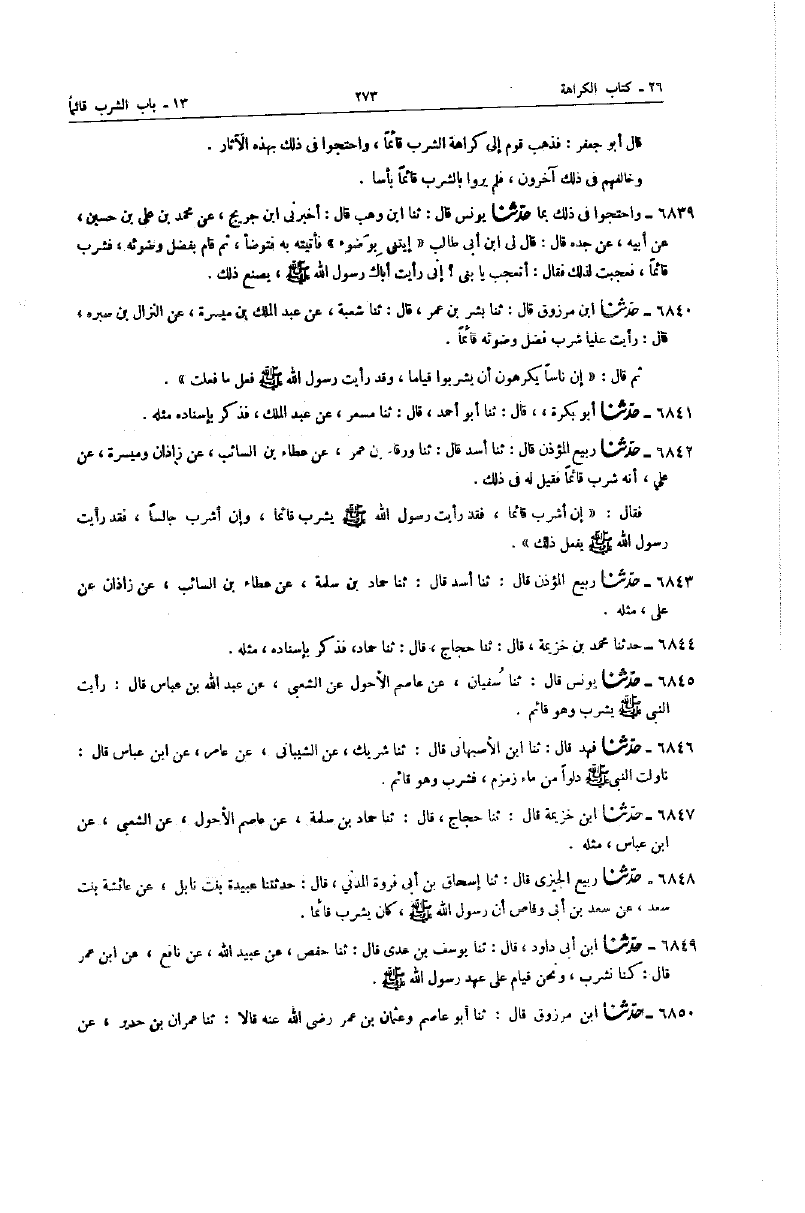 ٢٦ - كتاب الكراهة
٢٧٣
١٣ - باب الشرب قائماً
قال أبو جعفر : فذهب قوم إلى كراهة الشرب قائماً ، واحتجوا فى ذلك بهذه الآثار .
وخالفهم فى ذلك آخرون ، فلم يروا بالشرب قائماً بأسا .
٦٨٣٩ - واحتجوا فى ذلك بما حدّثنا يونس قال : ثنا ابن وهب قال : أخبرنى ابن جريج ، عن محمد بن على بن حسين ،
عن أبيه ، عن جده قال : قال لى ابن أبى طالب « إيتنى بوَضوء » فأتيته به فتوضأ ، ثم قام بفضل وضوئه ، فشرب
قائماً ، فعجبت لذلك فقال : أتعجب يا بنى ؟ إنى رأيت أباك رسول الله ﷺ ، يصنع ذلك .
٦٨٤٠ - حدّثنا ابن مرزوق قال : ثنا بشر بن عمر ، قال : ثنا شعبة ، عن عبد الملك بن ميسرة ، عن النزال بن سبره ،
قال : رأيت عليا شرب فضل وضوئه قائماً .
ثم قال : « إن ناساً يكرهون أن يشربوا قياما ، وقد رأيت رسول الله ﷺ فعل ما فعلت » .
٦٨٤١ - حدّثنا أبو بكرة ، ، قال : ثنا أبو أحمد ، قال : ثنا مسعر ، عن عبد الملك ، فذكر بإسناده مثله .
٦٨٤٢ - حدّثنا ربيع المؤذن قال : ثنا أسد قال : ثنا ورقاء بن عمر ، عن عطاء بن السائب ، عن زاذان وميسرة ، عن
على ، أنه شرب قائماً فقيل له فى ذلك .
فقال : « إن أشرب قائما ، فقد رأيت رسول الله ﷺ يشرب قائما ، وإن أشرب جالساً ، فقد رأيت
رسول الله ﷺ يفعل ذلك » .
٦٨٤٣ - حدّثنا ربيع المؤذن قال : ثنا أسد قال : ثنا حماد بن سلمة ، عن عطاء بن السائب ، عن زاذان عن
على ، مثله .
٦٨٤٤ - حدثنا محمد بن خزيمة ، قال : ثنا حجاج ، قال : ثنا حماد، فذكر بإسناده ، مثله .
٦٨٤٥ - حدّثنا يونس قال : ثنا سُفيان ، عن عاصم الأحول عن الشعبى ، عن عبد الله بن عباس قال : رأيت
النبى ﷺ يشرب وهو قائم .
٦٨٤٦ - حدّثنا فهد قال : ثنا ابن الأصبهانى قال : ثنا شريك ، عن الشيبانى ، عن عامر، عن ابن عباس قال :
ناولت النبى ﷺ دلواً من ماء زمزم ، فشرب وهو قائم .
٦٨٤٧ - حدّثنا ابن خزيمة قال : ثنا حجاج ، قال : ثنا حماد بن سلمة ، عن عاصم الأحول ، عن الشعبى ، عن
ابن عباس ، مثله .
٦٨٤٨ - حدّثنا ربيع الجيزى قال : ثنا إسحاق بن أبى فروة المدنى ، قال : حدثتنا عبيدة بنت نابل ، عن عائشة بنت
سعد ، عن سعد بن أبى وقاص أن رسول الله ﷺ ، كان يشرب قائما .
٦٨٤٩ - حدّثنا ابن أبى داود ، قال : ثنا يوسف بن عدى قال : ثنا حفص ، عن عبيد الله ، عن نافع ، عن ابن عمر
قال : كنا نشرب ، ونحن قيام على عهد رسول الله ﷺ .
٦٨٥٠ - حدّثنا ابن مرزوق قال : ثنا أبو عاصم وعثمان بن عمر رضى الله عنه قالا : ثنا عمران بن حدير ، عن